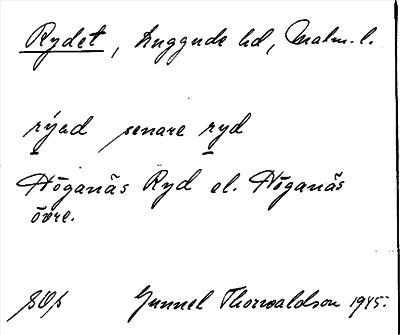 Rydet, Luggude hd, Malm. l.
rýad senare ryd
Höganäs Ryd el. Höganäs
övre.
SOp Gunnel Thorwaldson 1945.